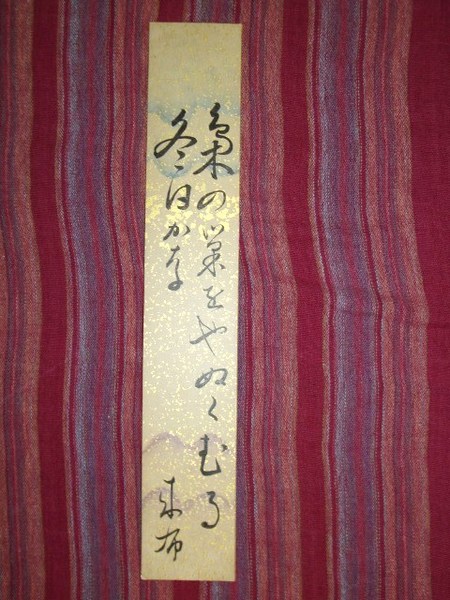 梟の巣をやぬくむる
冬日かな
来布